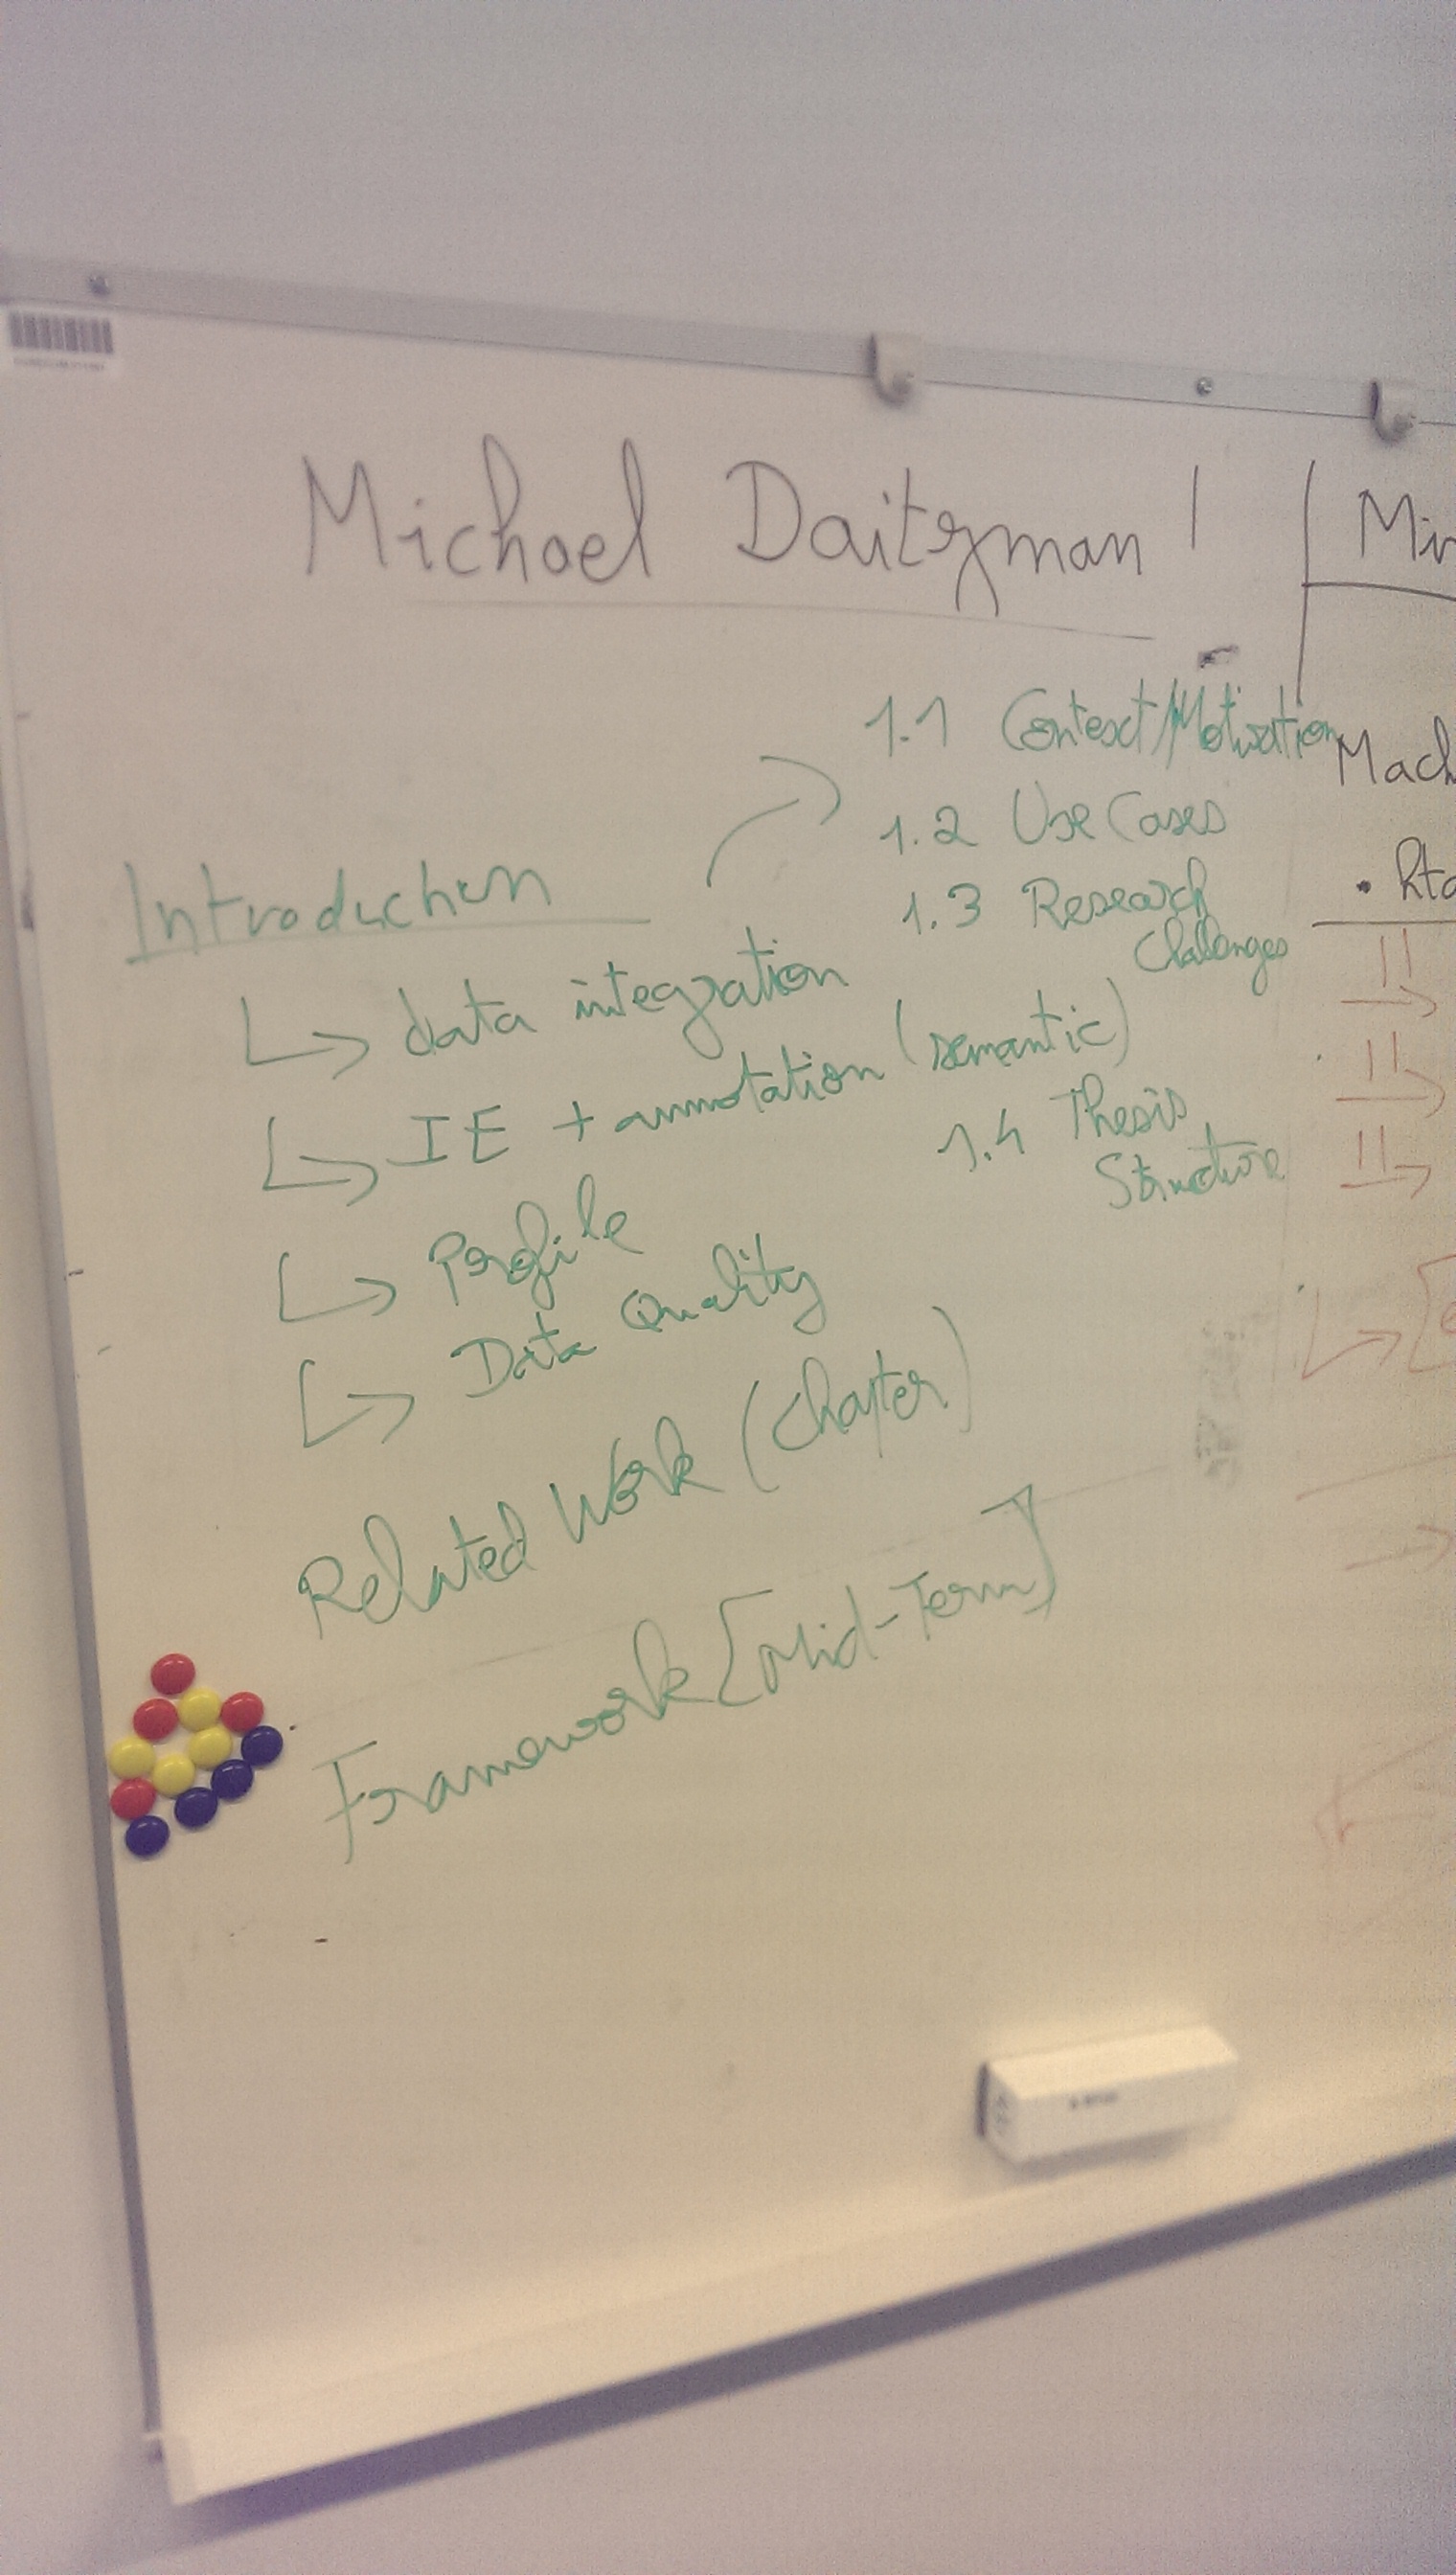 Michael Daitzman !
1.1 Context/Motivation
1.2 Use Cases
1.3 Research
Challenges
1.4 Thesis
Structure
Introduction
data integration
IE + annotation (semantic)
Profile
Data Quality
Related Work (chapter)
Framework [Mid-Term]
Mach